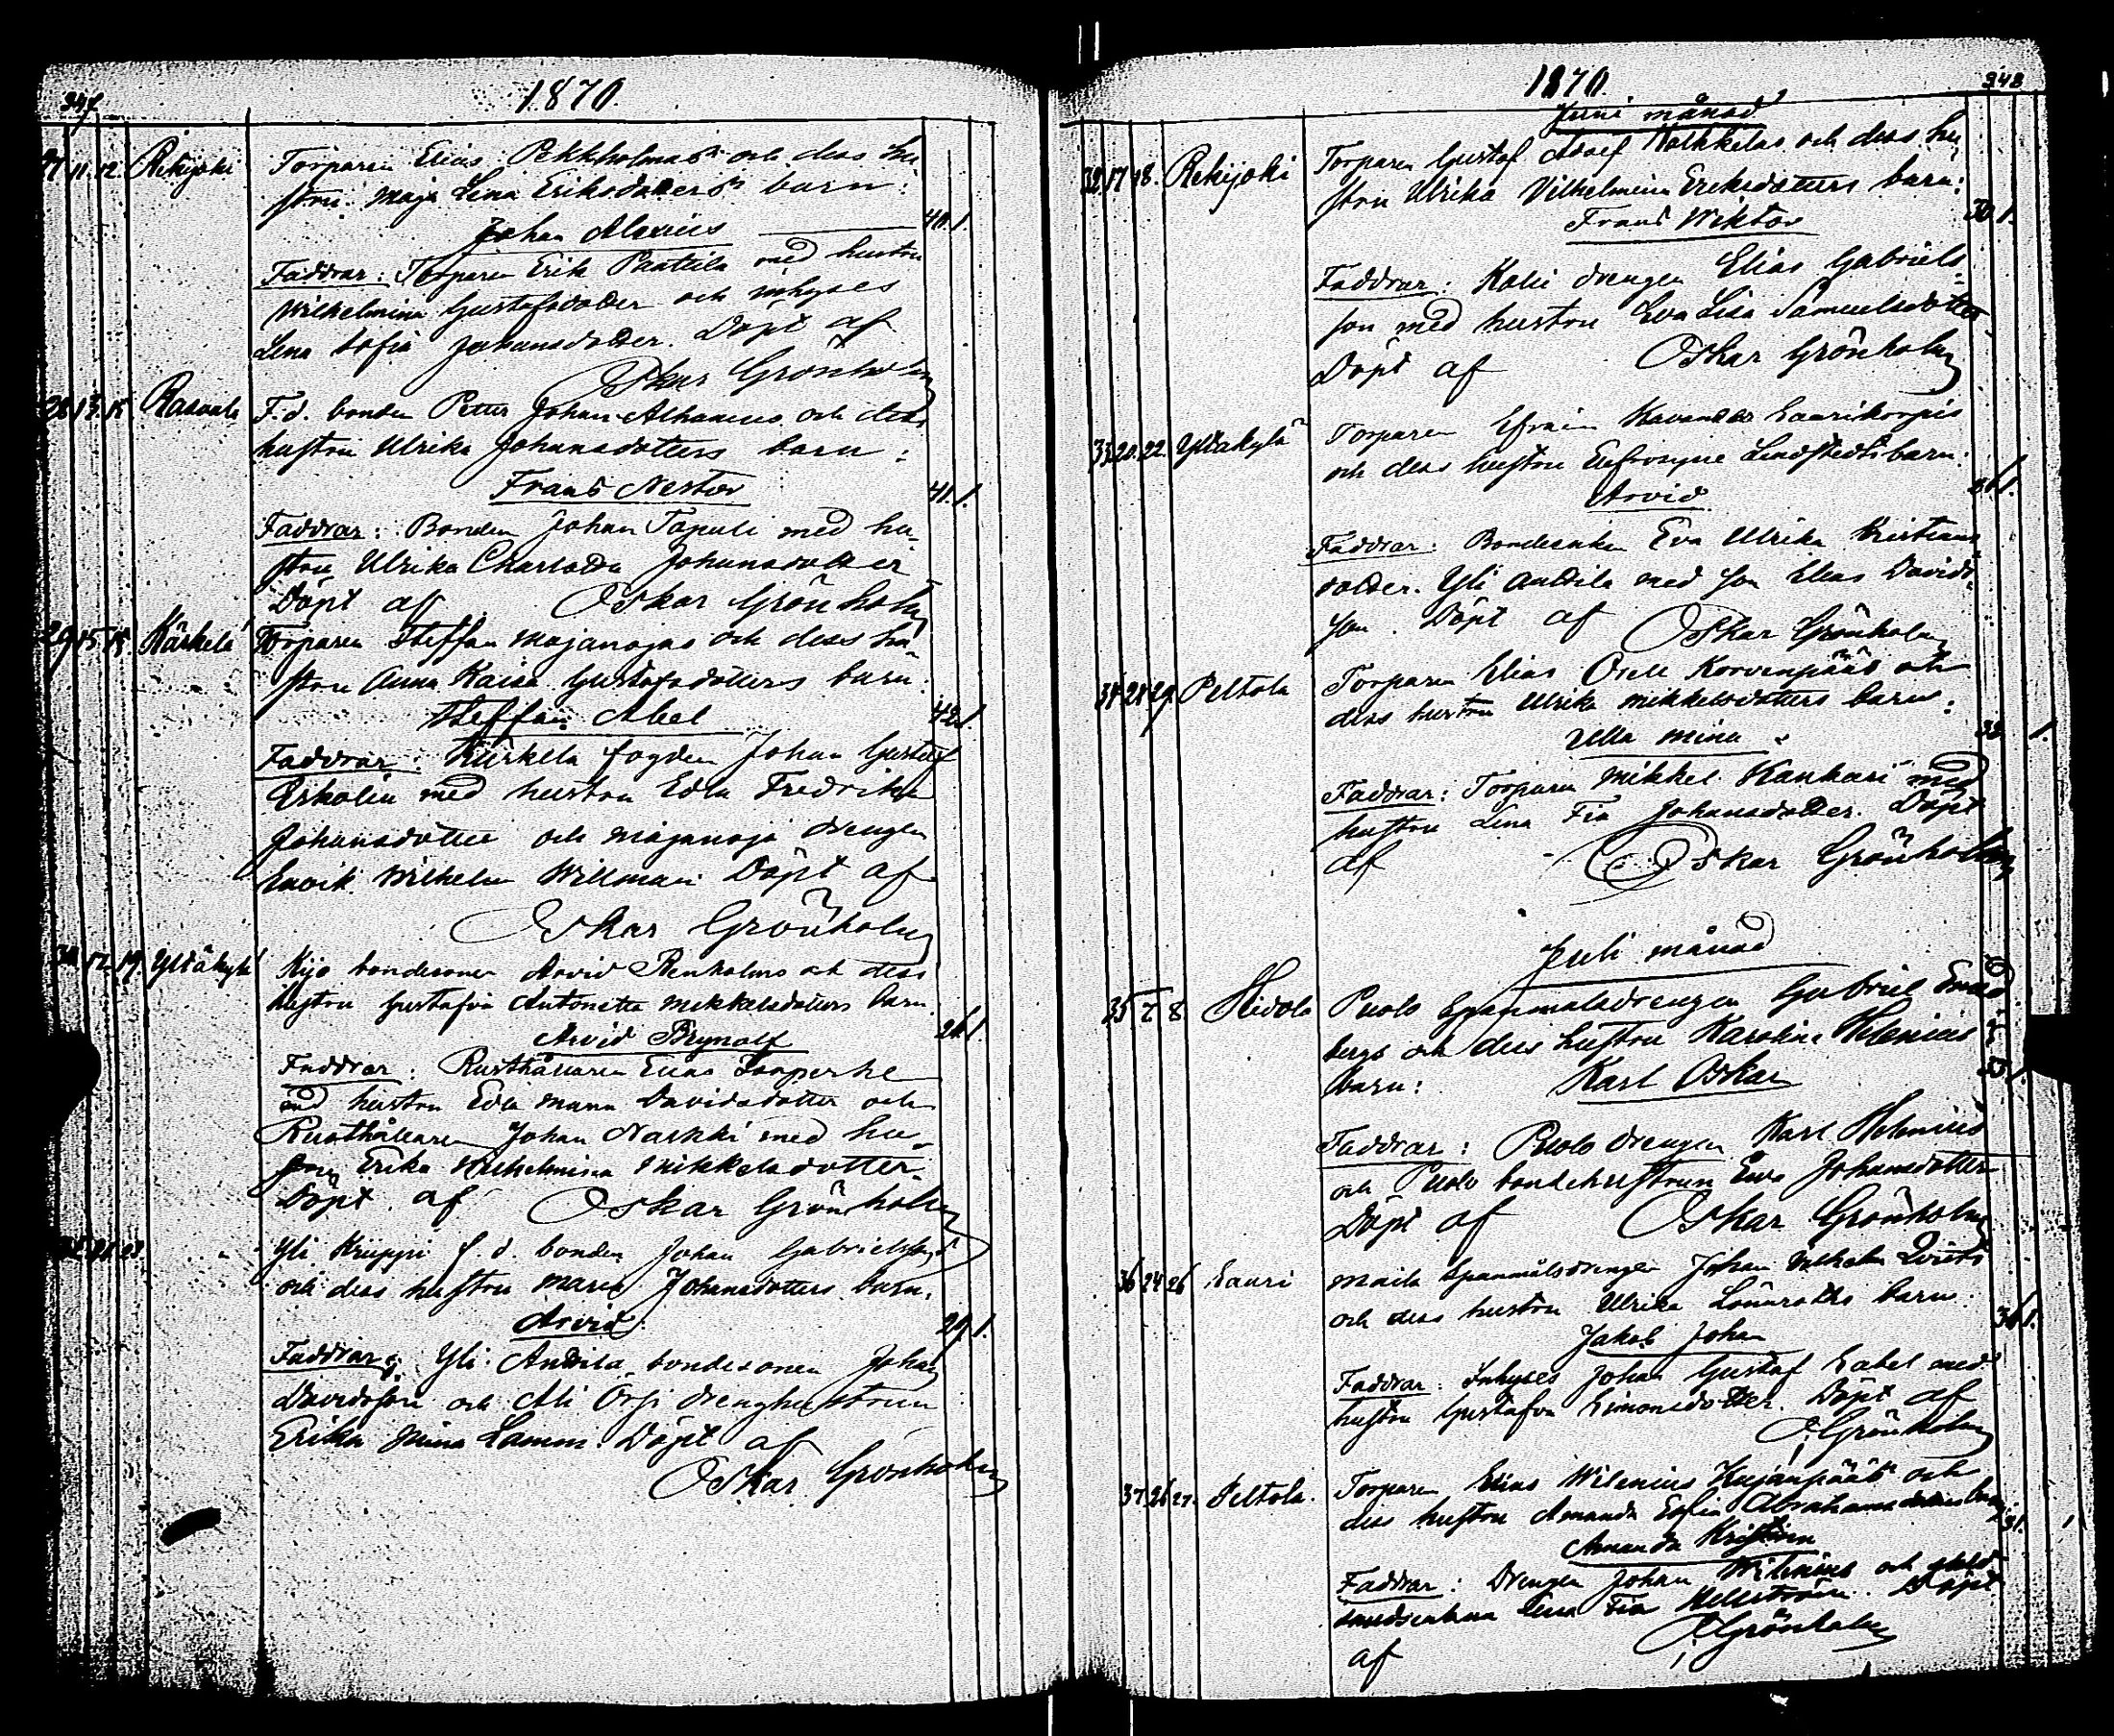 347
1870.
27. 11. 12. Rekijoki Torparen Elias Pekkholmas och dess hu-
strus Maja Lena Eriksdotters barn:
Johan Alexius 40. 1.
Faddrar: Torparen Erik Panttila med hustru
Wilhelmina Gustafsdotter och inhyses
Lena Sofia Johansdotter. Döpt af
Oskar Grönholm
28. 13. 15. F.d. bonden Petter Johan och dess
hustru Ulrika Johansdotters barn:
Frans Nestor 41. 1.
Faddrar: Bonden Johan Tapuli med hu-
stru Ulrika Charlotta Johansdotter
Döpt af Oskar Grönholm
29. 15. 18. Kärkelä Torparen Steffan Majanojas och dess hu-
stru Anna Kaisa Gustafsdotters barn:
Steffan Abel 42. 1.
Faddrar: Kärkelä fogden Johan Gustaf
Eskolin med hustru Edla Fredrika
Johansdotter och Majanoja drengen
Wilhelm Willman Döpt af
Oskar Grönholm
30. 17. 19. Yltäkylä bondesonen Arvid Renholms och dess
hustru Gustafva Antonetta Mikkelsdotters barn
Arvid Brynolf 26. 1.
Faddrar: Rusthållaren Elias
med hustru Eva Maria Davidsdotter och
Rusthållaren Johan Narkki med hu-
stru Erika Wilhelmina Mikkelsdotter.
Döpt af Oskar Grönholm
Yli Kruppi f.d. bonden Johan Gabrielssons
och dess hustru Maria Johansdotters barn.
Arvid 29. 1.
Faddrar: Yli Anttila bondesonen Johan
Davidsson och Ali Örji drenghustrun
Erika Mina Döpt af
Oskar Grönholm
348
1870.
Juni månad
32. 17. 18. Rekijoki Torparen Gustaf Adolf och dess hu-
stru Ulrika Vilhelmina Eriksdotters barn:
Frans Wiktor 30. 1.
Faddrar: drengen Elias Gabriels-
son med hustru Eva Lisa Samuelsdotter.
Döpt af Oskar Grönholm
33. 20. 22. Yltäkylä Torparen Efraim Laurikorpis
och dess hustru Eufrosyne Lindstedts barn:
Arvid 1.
Faddrar: Bondenkan Eva Ulrika Kristians-
dotter. Yli Anttila med son Elias Davids-
son. Döpt af Oskar Grönholm
34. 28. 29. Peltola Torparen Elias Korvenpääs och
dess hustru Ulrika Mikkelsdotters barn:
Ulla Mina 1.
Faddrar: Torparen Mikkel Kankari med
hustru Lena Fia Johansdotter. Döpt
af Oskar Grönholm
Juli månad
35. 7. 8. Hidola Puolo Spannmålsdrengen Gabriel
bergs och dess hustru Karolina Helenius
barn: Karl Oskar 1.
Faddrar: Puolo drengen Karl Helenius
och Puolo bondehustrun Eva Johansdotter
Döpt af Oskar Grönholm
36. 24. 26. Lauri Maila Spannmålsdrengen Johan Wilhelm Qvists
och dess hustru Ulrika Lönnroths barn:
Jakob Johan 36. 1.
Faddrar: Inhyses Johan Gustaf med
hustru Gustafva Simonsdotter. Döpt af
O. Grönholm
37. 26. 27. Peltola. Torparen Elias Wilenius Kujanpääs och
dess hustru Amanda Sofia Abrahamsdotters barn:
Amanda Kristina 31. 1
Faddrar: Drengen Johan Wilenius och
Lena Fia Hellström. Döpt
af O. Grönholm